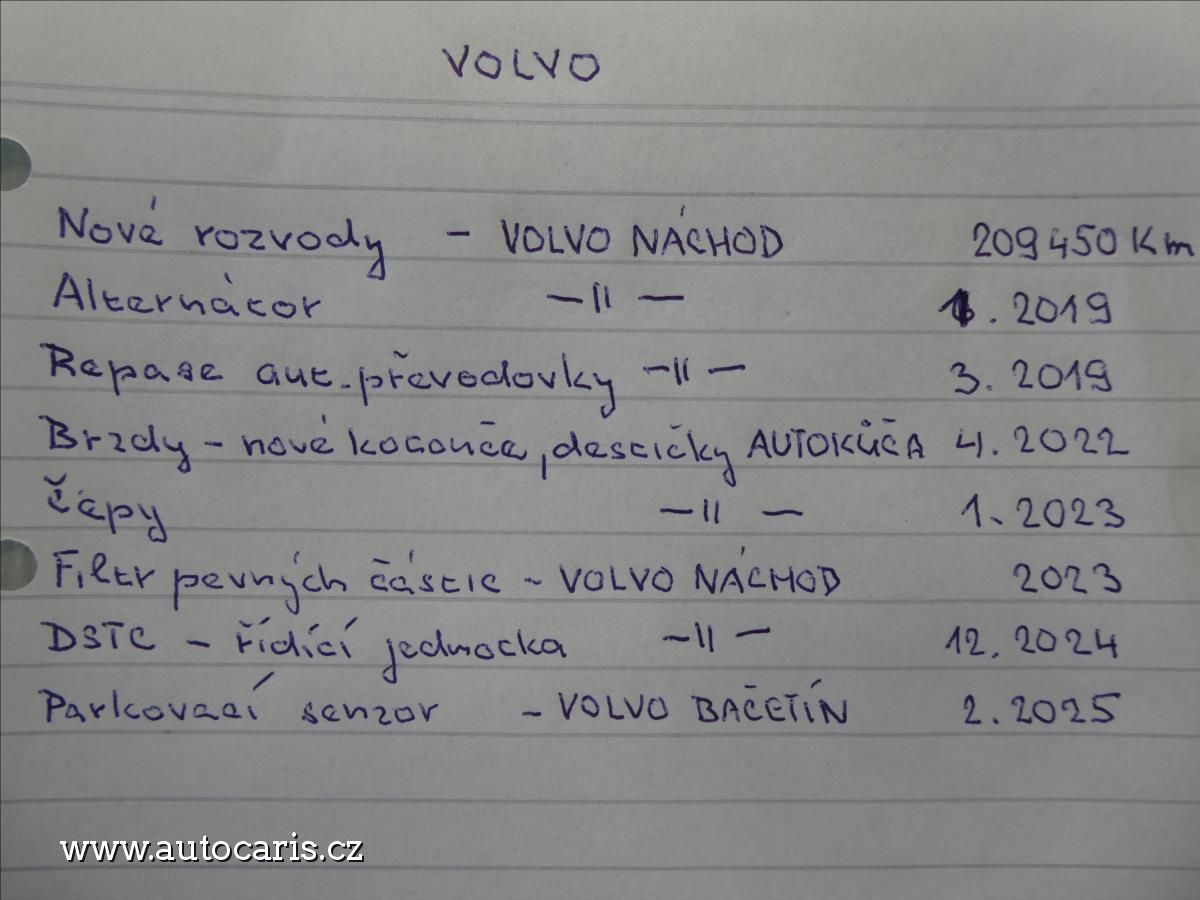 VOLVO
Nové rozvody - VOLVO NÁCHOD 209450 Km
Alternátor -||- . 2019
Repase aut. převodovky -||- 3. 2019
Brzdy - nové kotouče, destičky AUTOKŮČA 4. 2022
Čepy -||- 1. 2023
Filtr pevných částic - VOLVO NÁCHOD 2023
DSTC - řídící jednotka -||- 12. 2024
Parkovací senzor - VOLVO BAČETÍN 2. 2025
www.autocaris.cz